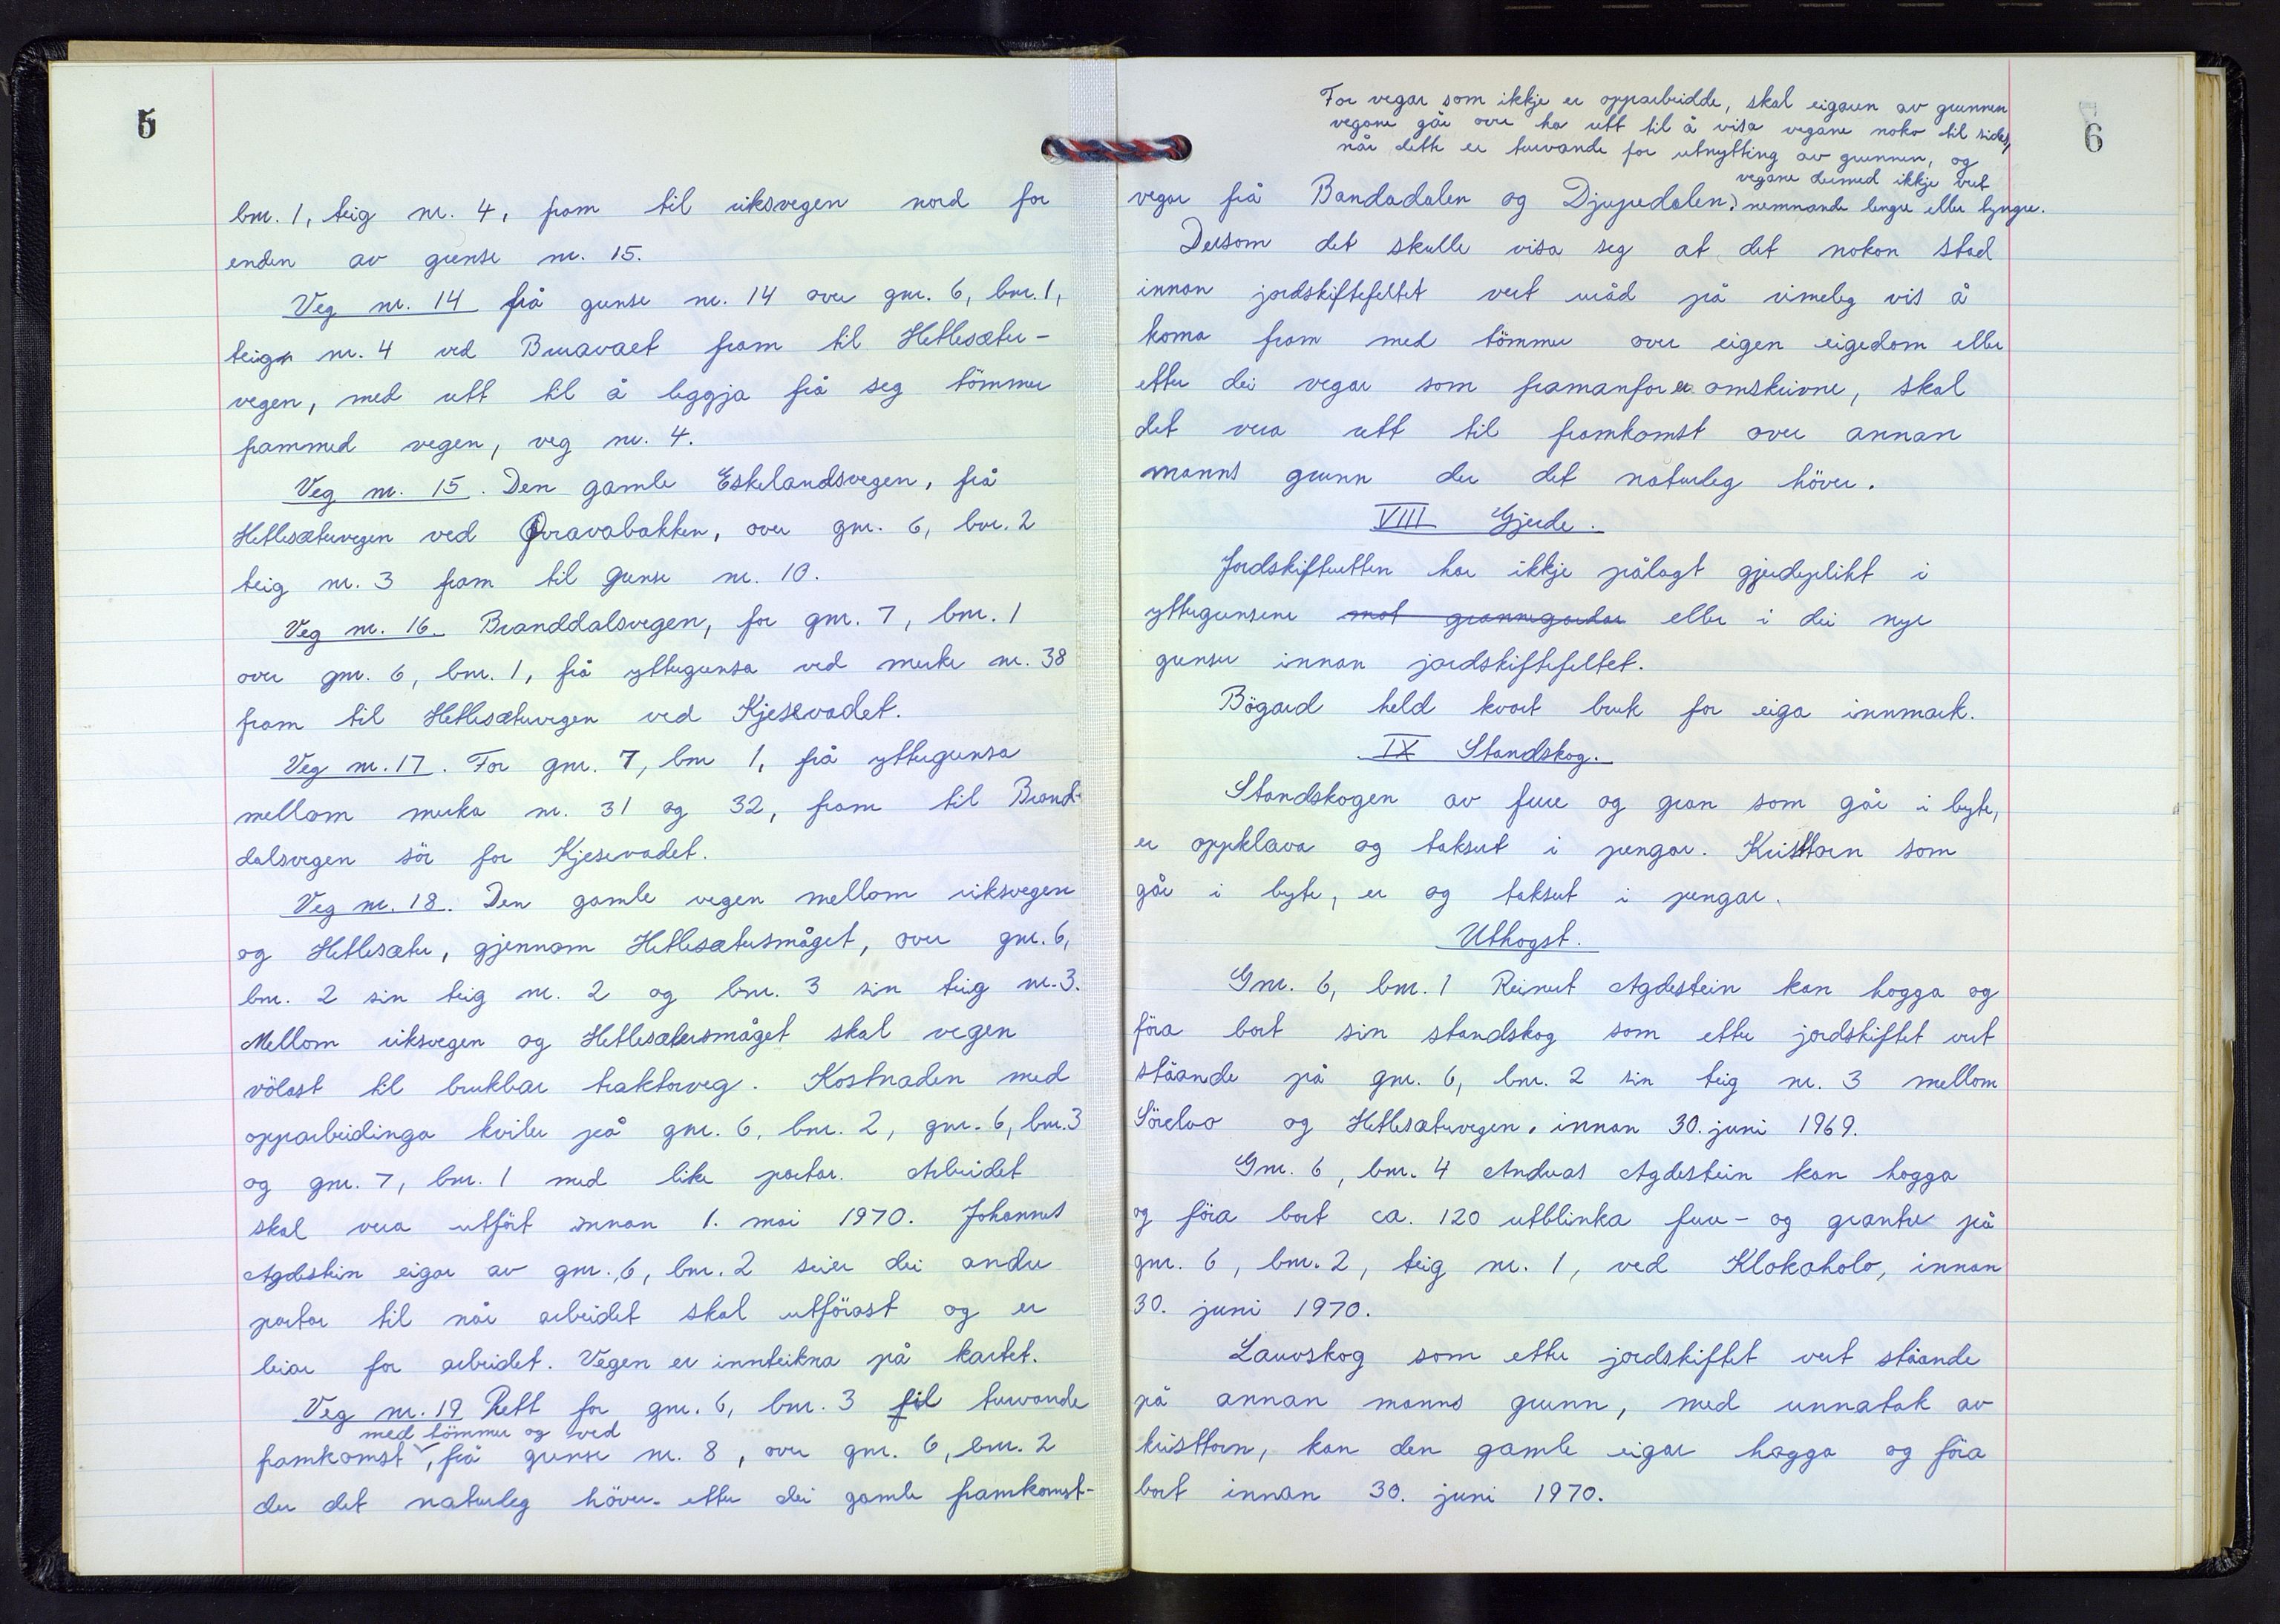 5
bnr. 1, teig nr. 4, fram til riksvegen nord for
enden av grense nr. 15.
Veg nr. 14 frå grense nr. 14 over gnr. 6, bnr. 1,
teig nr. 4 ved Bruavaet fram til Hetlesæter-
vegen, med rett til å leggja frå seg tömmer
frammed vegen, veg nr. 4.
Veg nr. 15. Den gamle Eskelandsvegen, frå
Hetlesætervegen ved Qvavabakken, over gnr. 6, bnr. 2
teig nr. 3 fram til grense nr. 10.
Veg nr. 16. Branddalsvegen, for gnr. 7, bnr. 1
over gnr. 6, bnr. 1, frå yttergrensa ved merke nr. 38
fram til Hetlesætervegen ved Kjesevadet.
Veg nr. 17. For gnr. 7, bnr 1, frå yttergrensa
mellom merka nr. 31 og 32, fram til Brand-
dalsvegen sör for Kjesevadet.
Veg nr. 18. Den gamle vegen mellom riksvegen
og Hetlesæter, gjennom Hetlesætersmåget, over gnr. 6,
bnr. 2 sin teig nr. 2 og bnr. 3 sin teig nr. 3.
Mellom riksvegen og Hetlesætersmåget skal vegen
völast til brukbar traktorveg. Kostnaden med
opparbeidinga kviler på gnr. 6, bnr. 2, gnr. 6, bnr. 3
og gnr. 7, bnr. 1 med like partar. Arbeidet
skal vera utfört innan 1. mai 1970. Johannes
Agdestein eigar av gnr. 6, bnr. 2 seier dei andre
partar til når arbeidet skal utförast og er
leiar for arbeidet. Vegen er innteikna på kartet.
Veg nr. 19 Rett for gnr. 6, bnr. 3 til turvande
med tömmer og ved
framkomst, frå grense nr. 8, over gnr. 6, bnr. 2
der det naturleg höver. etter dei gamle framkomst-
6
For vegar som ikkje er opparbeidde, skal eigaren av grunnen
vegane går over ha rett til å visa vegane noko til sides,
når dette er turvande for utnytting av grunnen, og
vegane dermed ikkje vert
vegar frå Bandadalen og Djupedalen. nemnande lengre eller tyngre.
Dersom det skulle visa seg at det nokon stad
innan jordskiftefeltet vert uråd på rimeleg vis å
koma fram med tömmer over eigen eigedom eller
etter dei vegar som framanfor er omskrivne, skal
det vera rett til framkomst over annan
manns grunn der det naturleg höver.
VIII Gjerde.
Jordskifteretten har ikkje pålagt gjerdeplikt i
yttergrensene mot grannegardar eller i dei nye
grenser innan jordskiftefeltet.
Bögard held kvart bruk for eiga innmark.
IX Standskog.
Standskogen av fure og gran som går i byte,
er oppklava og taksert i pengar. Kristtorn som
går i byte, er og taksert i pengar.
Uthogst.
Gnr. 6, bnr. 1 Reinert Agdestein kan hogga og
föra bort sin standskog som etter jordskiftet vert
ståande på gnr. 6, bnr. 2 sin teig nr. 3 mellom
Sörelvo og Hetlesætervegen, innan 30. juni 1969.
Gnr. 6, bnr. 4 Andreas Agdestein kan hogga
og föra bort ca. 120 utblinka fure- og grantre på
gnr. 6, bnr. 2, teig nr. 1, ved Klokaholo, innan
30. juni 1970.
Lauvskog som etter jordskiftet vert ståande
på annan manns grunn, med unnatak av
kristtorn, kan den gamle eigar hogga og föra
bort innan 30. juni 1970.